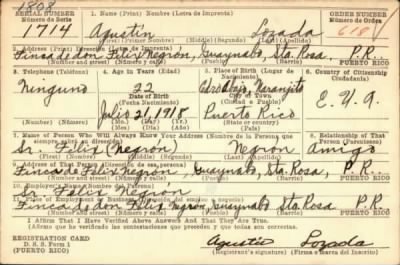 1808
SERIAL NUMBER 1. Name (Nombre) (Letra de Imprenta) ORDER NUMBER
Número de Serie Número de Orden
1714 Agustín Lozada 618
(First) (Primer Nombre) (Middle) (Segundo) (Last) (Apellido)
2. Address (Print) Dirección (Letra de Imprenta)
Finca de don Felix Negron, Guaynabo, Sta. Rosa, P.R.
(Number and street) (Número y calle) (Town) (Pueblo) PUERTO RICO
3. Telephone (Teléfono) 4. Age in Years (Edad) 5. Place of Birth (Lugar de Nacimiento) 6. Country of Citizenship (Ciudadanía)
Ninguno 22 Naranjito E.U.A.
Date of Birth
(Fecha Nacimiento)
Town or City
(Ciudad o Pueblo)
Julio 21/1918 Puerto Rico
(Mo.) (Day) (Yr.) State or country
(Mes) (Día) (Año) (Estado o País)
7. Name of Person Who Will Always Know Your Address (Nombre de la Persona que siempre sabrá su dirección) 8. Relationship of That Person (Parentesco)
Sr. Felix (Negrón) Negron Amigo
(Mr., Mrs., Miss) (First) (Middle) (Last) (Apellido)
9. Address of That Person (Dirección de esa persona)
Finca de Felix Negron, Guaynabo, Sta. Rosa, P.R.
(Number and street) (Número y calle) (Town) (Pueblo) PUERTO RICO
10. Employer's Name (Nombre del patrono)
Sr. Felix Negrón
11. Place of Employment or Business (Dirección del empleo o negocio)
Finca de don Felix Negron, Guaynabo, Sta. Rosa P.R.
(Number and street) (Número y calle) (Town) (Pueblo) PUERTO RICO
I Affirm That I Have Verified Above Answers and That They Are True.
(Afirmo que he verificado las contestaciones que preceden y que todas son correctas).
REGISTRATION CARD
D. S. S. Form 1
(PUERTO RICO)
Agustín Lozada
(Registrant's signature) (Firma o marca del Inscrito)